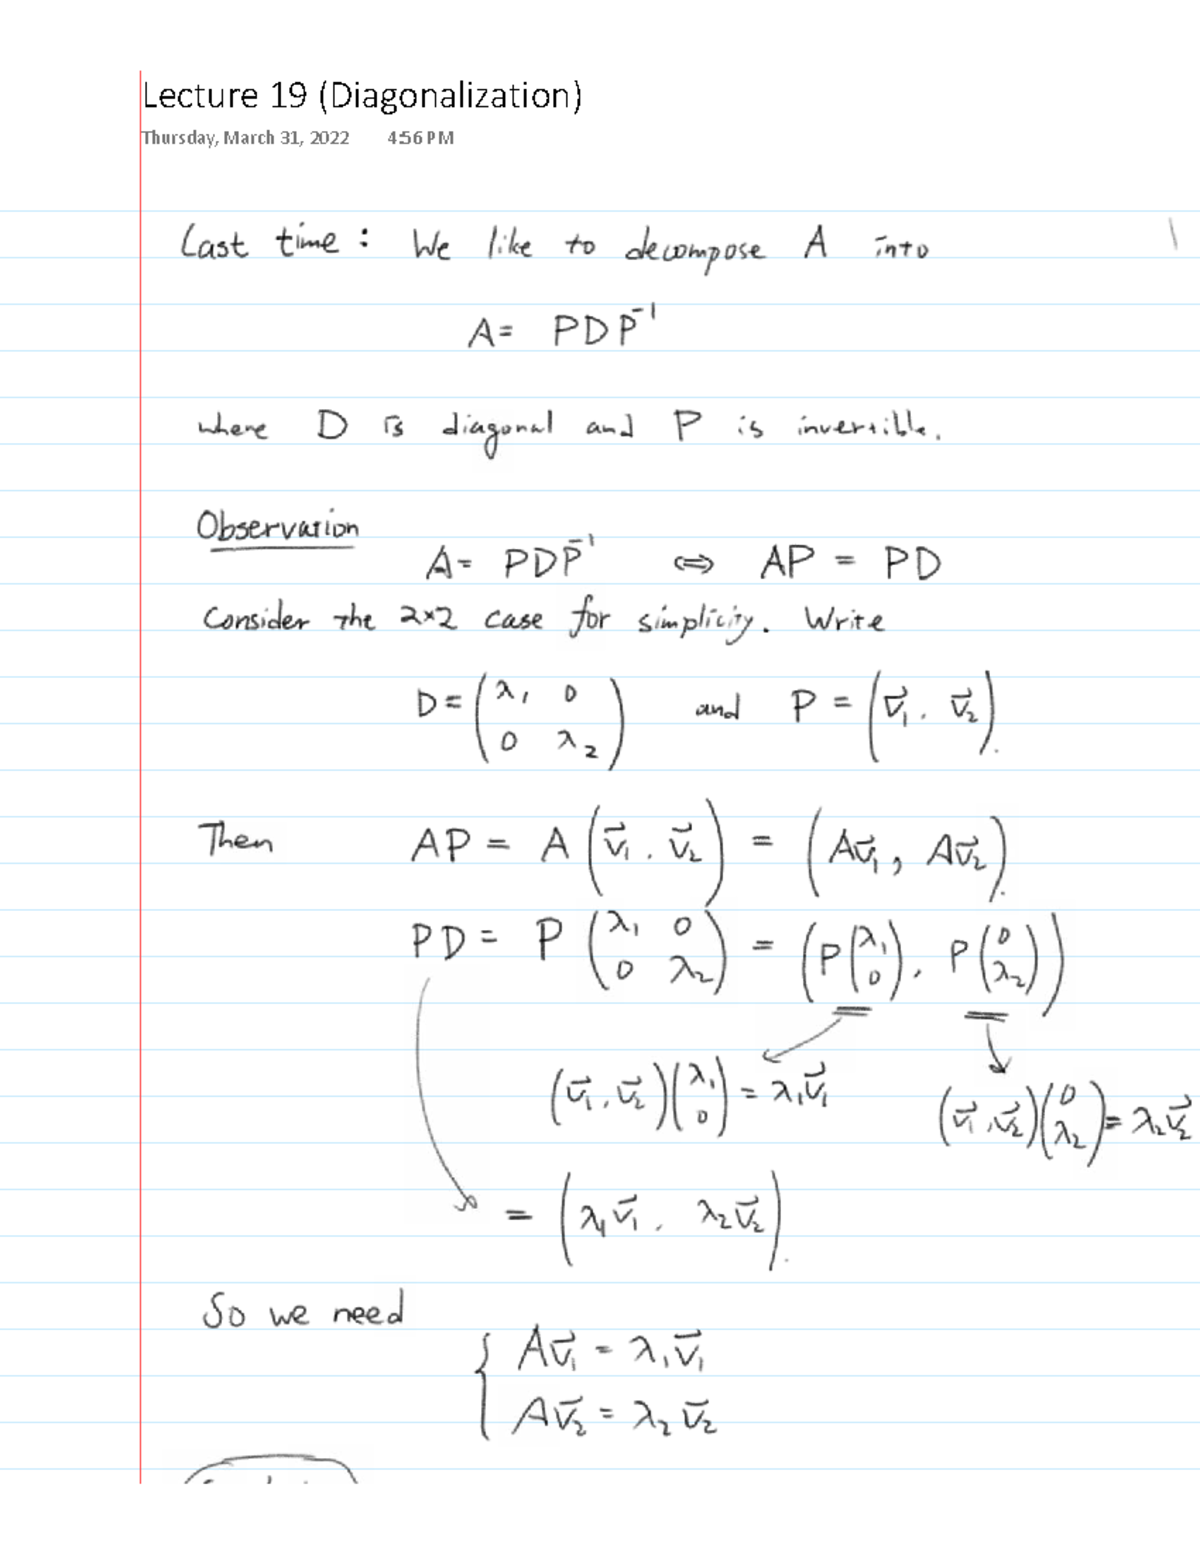 Lecture 19 (Diagonalization)
Thursday, March 31, 2022 4:56 PM
Last time: We like to decompose A into
A = PDP⁻¹
where D is diagonal and P is invertible.
Observation
A = PDP⁻¹ ⇔ AP = PD
Consider the 2×2 case for simplicity. Write
D = (λ₁ 0; 0 λ₂) and P = (v⃗₁, v⃗₂).
Then AP = A (v⃗₁, v⃗₂) = (Av⃗₁, Av⃗₂).
PD = P (λ₁ 0; 0 λ₂) = (P(λ₁; 0), P(0; λ₂))
(v⃗₁, v⃗₂)(λ₁; 0) = λ₁v⃗₁ (v⃗₁, v⃗₂)(0; λ₂) = λ₂v⃗₂
= (λ₁v⃗₁, λ₂v⃗₂).
So we need
{ Av⃗₁ = λ₁v⃗₁
Av⃗₂ = λ₂v⃗₂